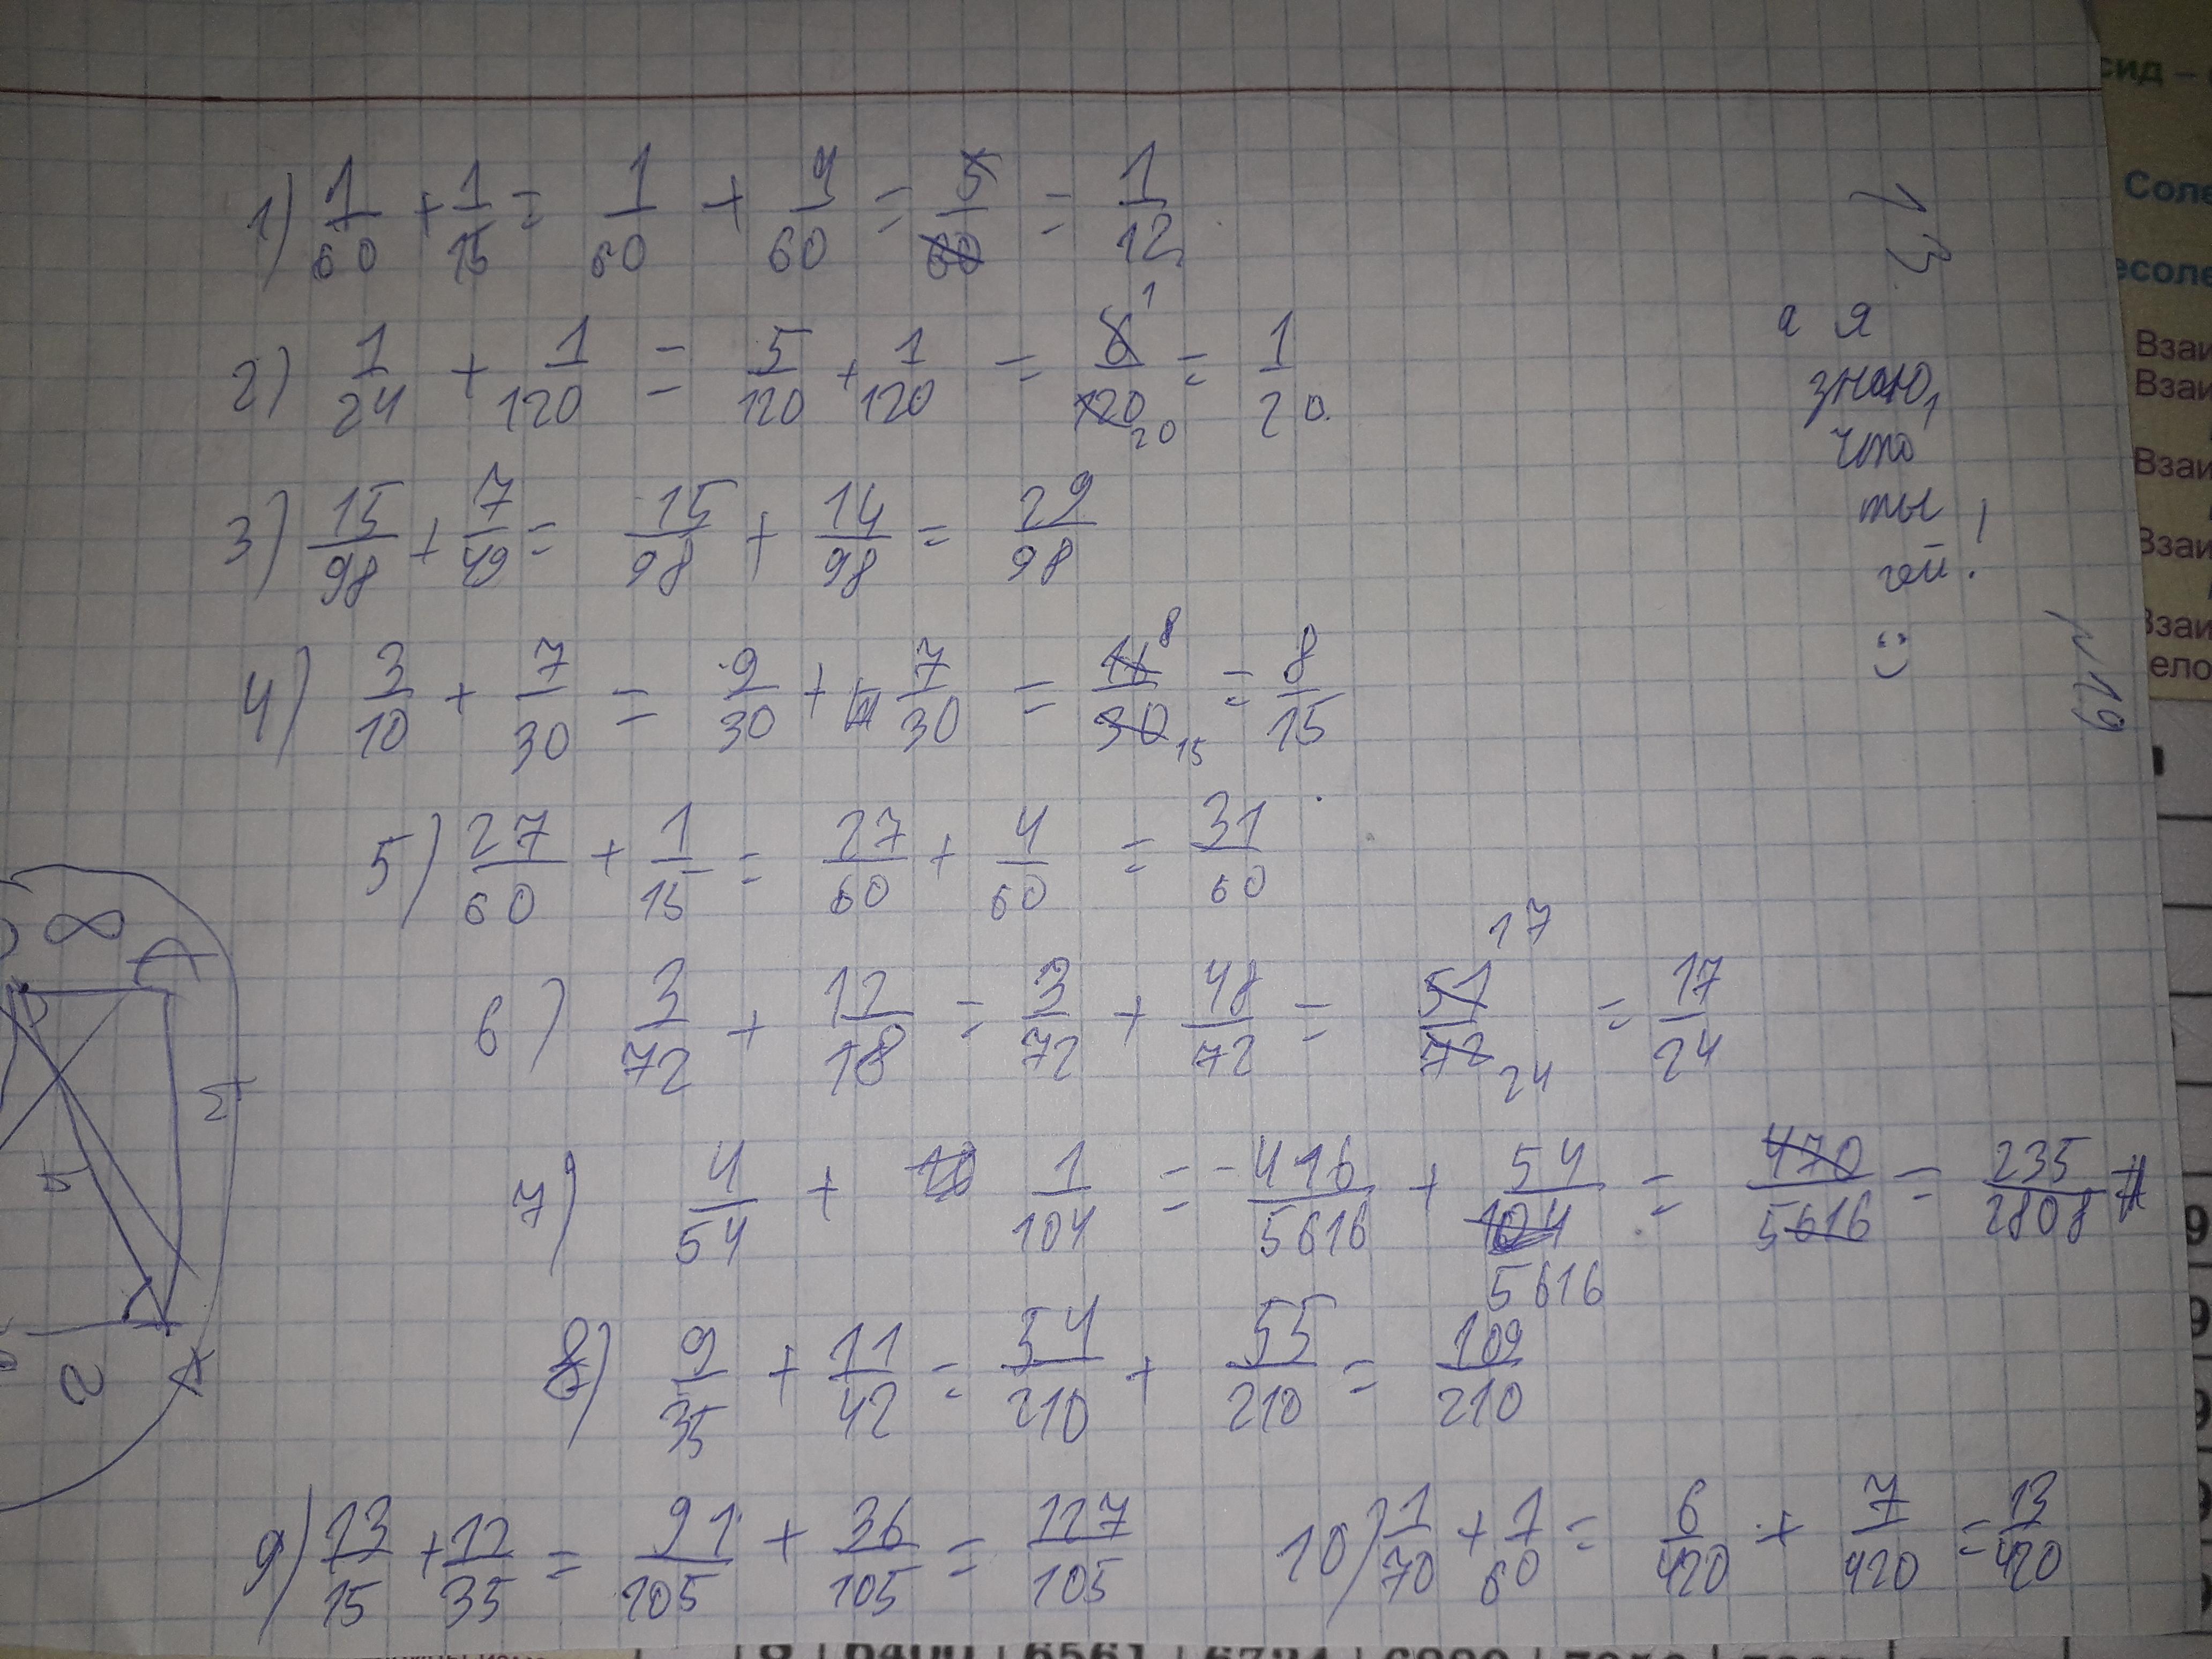 1) 1/60 + 1/15 = 1/60 + 4/60 = 5/60 = 1/12
2) 1/24 + 1/120 = 5/120 + 1/120 = 6/120 1 20 = 1/20
3) 15/98 + 7/49 = 15/98 + 14/98 = 29/98
4) 3/10 + 7/30 = 9/30 + 7/30 = 16/30 8 15 = 8/15
5) 27/60 + 1/15 = 27/60 + 4/60 = 31/60
6) 3/72 + 12/18 = 3/72 + 48/72 = 51/72 17 24 = 17/24
7) 4/54 + 1/104 = 416/5616 + 54/5616 = 470/5616 = 235/2808
8) 9/35 + 11/42 = 54/210 + 55/210 = 109/210
9) 13/15 + 12/35 = 91/105 + 36/105 = 127/105
10) 1/70 + 1/60 = 6/420 + 7/420 = 13/420
13
а я
знаю,
что
ты
гей!
:)
~19
8
5
2
сид –
Соле
есоле
Взаи
Взаи
Взаи
Взаи
Взаи
ело
9
9
9
9
6561